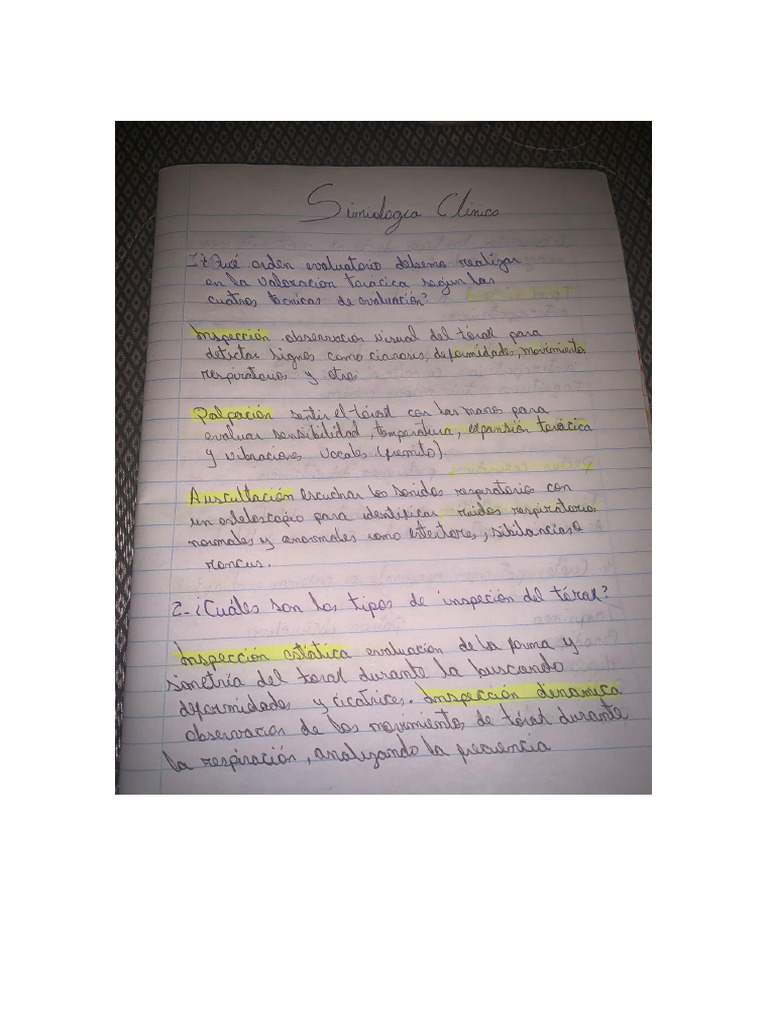 Simiología Clinica
1¿Qué orden evaluatorio debemo realizar
en la valoracion toracica segun las
cuatros tecnicas de evaluación?
Inspección observacion visual del tórax para
detectar signos como cianores, deformidades, movimiento
respiratorios y otro
Palpación sentir el tórax con las manos para
evaluar sensibilidad, temperatura, expansión torácica
y vibraciones vocales (fremito).
Auscultación escuchar los sonidos respiratorio con
un esteloscopio para identificar ruidos respiratorios
normales y anormales como estertores, sibilancias o
roncus.
2-¿Cuáles son los tipos de inspeción del tórax?
Inspección estática evaluación de la forma y
simetría del torax durante la buscando
deformidades y cicatrices. Inspección dinamica
observacion de los movimientos de tórax durante
la respiración, analizando la frecuencia